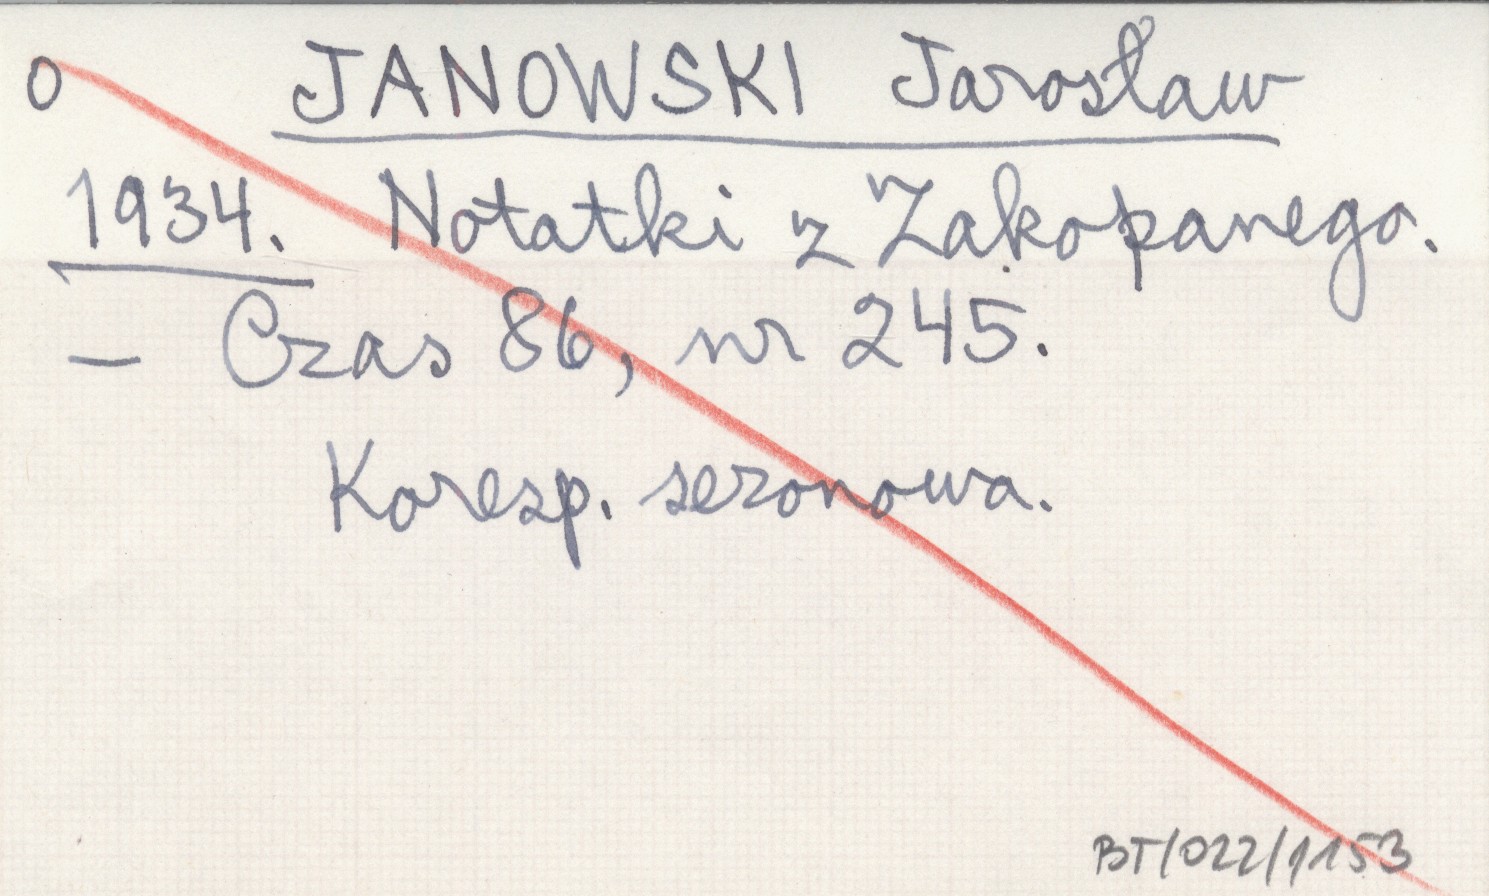 O JANOWSKI Jarosław
1934. Notatki z Zakopanego.
— Czas 86, nr 245.
Koresp. sezonowa.
BT/022/1153